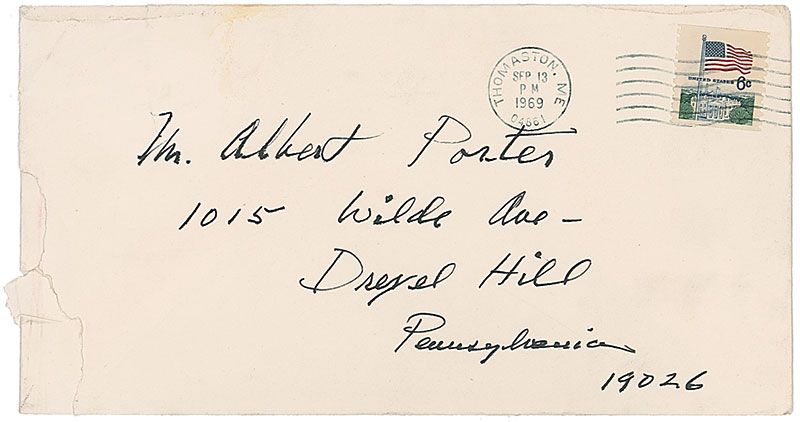 THOMASTON, ME
SEP 13
PM
1969
04861
UNITED STATES
6¢
Mr. Albert Porter
1015 Wilde Ave-
Drexel Hill
Pennsylvania
19026